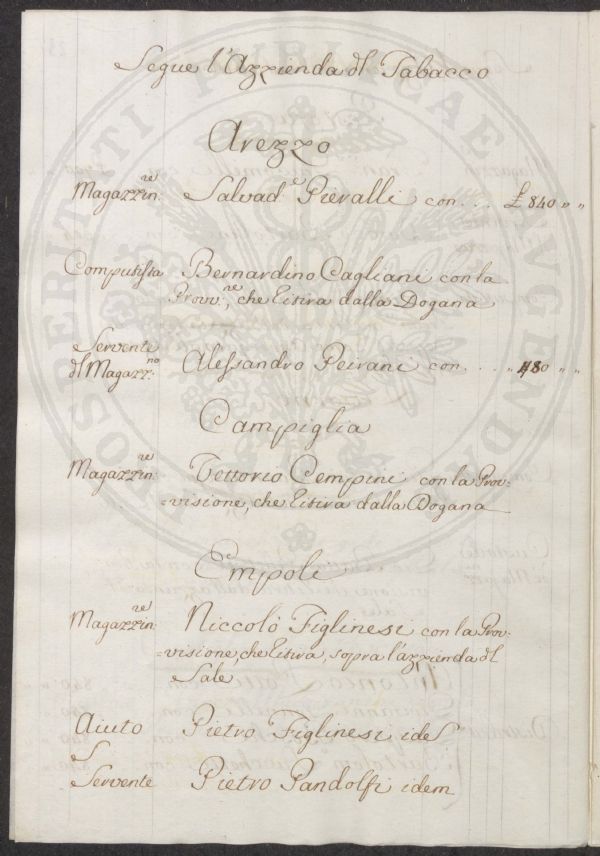 Segue l'Azzienda dl Tabacco
Arezzo
Magazzin:re Salvad.e Pieralli con.... £ 840 " "
Computista Bernardino Cagliani con la
Provv.ne, che Eitira dalla Dogana
Servente
dl Magazz:no Alessandro Peirani con.... " 480 " "
Campiglia
Magazzin:re Vettorio Cempini con la Prov:
=visione, che Eitira dalla Dogana
Empoli
Magazzin:re Niccolò Figlinesi con la Prov:
=visione, che Eitira, sopra l'azzienda dl
Sale
Aiuto Pietro Figlinesi ide
Servente Pietro Pandolfi idem
PROSPERITATI PUBLICAE AUGENDAE